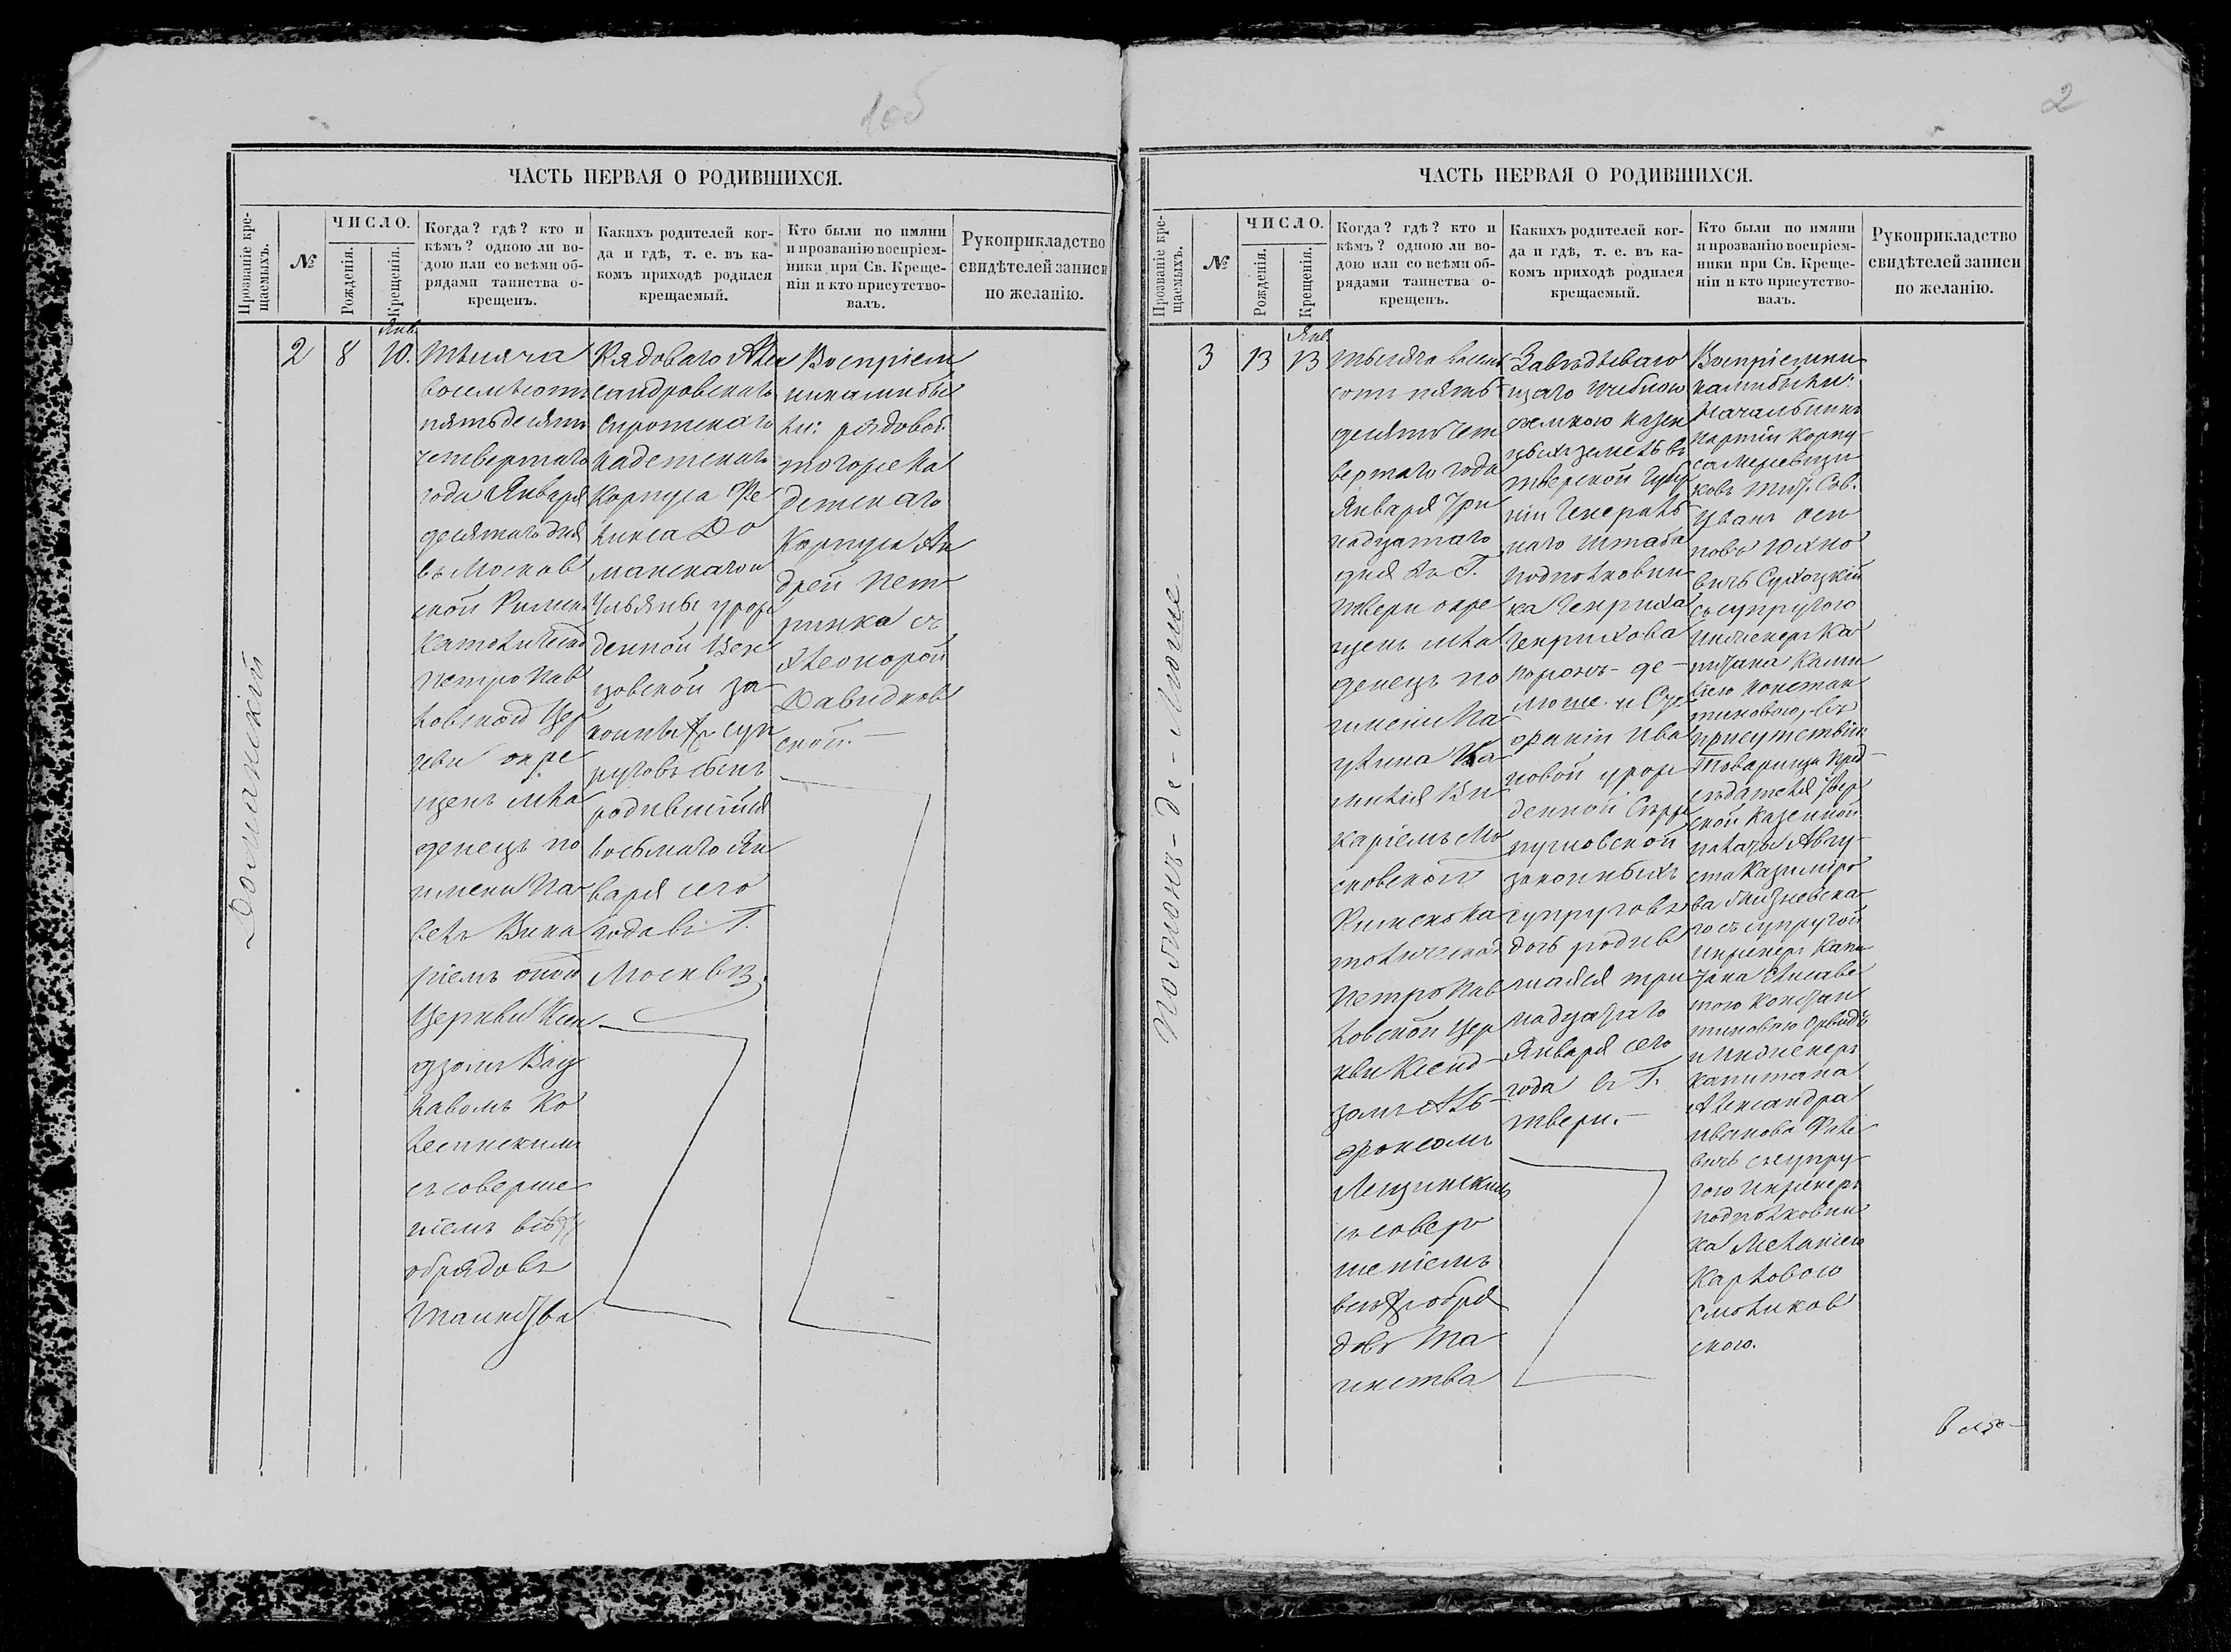 1об
ЧАСТЬ ПЕРВАЯ О РОДИВШИХСЯ.
Прозваніе кре-
щаемыхъ.
№
ЧИСЛО.
Рожденія.
Крещенія.
Когда? гдѣ? кто и
кѣмъ? одною ли во-
дою или со всѣми об-
рядами таинства о-
крещенъ.
Какихъ родителей ког-
да и гдѣ, т. е. въ ка-
комъ приходѣ родился
крещаемый.
Кто были по имяни
и прозванію воспріем-
ники при Св. Креще-
ніи и кто присутство-
валъ.
Рукоприкладство
свидѣтелей записи
по желанію.
Доманскій
2
8
Янв.
10.
Тысяча
восемьсотъ
пятьдесятъ
четвертаго
года Января
десятаго дня
въ Москов
ской Римско
Католической
Петро Пав
ловской Цер
кви окре
щенъ мла
денецъ по
имени Па-
велъ Вика
ріемъ оной
Церкви Ксен
дзомъ Вац
лавомъ Ко
лесинскимъ
съ соверше
ніемъ всѣхъ
обрядовъ
Таинства
Рядоваго Алек
сандровскаго
Сиротскаго
Кадетскаго
Корпуса Фе
ликса До
манскаго и
Ульяны урож
денной Вен
цовской за-
конныхъ суп
руговъ сынъ
родившійся
восьмаго Ян
варя сего
года въ Г.
Москвѣ.
Воспріем
никами бы
ли: рядовой
тогоже Ка
детскаго
Корпуса Ан
дрей Пет
ринка съ
Элеонорой
Давидков
ской.
2
ЧАСТЬ ПЕРВАЯ О РОДИВШИХСЯ.
Прозваніе кре-
щаемыхъ.
№
ЧИСЛО.
Рожденія.
Крещенія.
Когда? гдѣ? кто и
кѣмъ? одною ли во-
дою или со всѣми об-
рядами таинства о-
крещенъ.
Какихъ родителей ког-
да и гдѣ, т. е. въ ка-
комъ приходѣ родился
крещаемый.
Кто были по имяни
и прозванію воспріем-
ники при Св. Креще-
ніи и кто присутство-
валъ.
Рукоприкладство
свидѣтелей записи
по желанію.
3
13
Янв.
13
Тысяча восемь
сотъ пять
десятъ чет
вертаго года
Января три
надцатаго
дня въ Г.
Твери окре
щенъ мла
денецъ по
имени Па
улина Ка
милія Ви
каріемъ Мо
сковской
Римско Ка
толической
Петро Пав
ловской Цер
кви Ксенд-
зомъ Аль
фонсомъ
Лещинскимъ
съ совер
шеніемъ
всѣхъ обря
довъ Та
инства
Завѣдываю
щаго съемкою казен
ныхъ земель въ
Тверской Губер
ніи Генераль
наго Штаба
Подполковни
ка Генриха
Генрихова
и Сте
фаніи Ива
новой урож
денной
законныхъ
супруговъ
дочь родив
шаяся три
надцатаго
Января сего
года въ Г.
Твери.
Воспріемни
ками были:
Начальникъ
партіи Корпу
са Межевщи
ковъ Тит. Сов.
Иванъ Оси
повъ Юхно
вичъ Сухоцкій
съ супругою
Инженеръ Ка
питана Ками
лією Констан
тиновою, въ
присутствіи
Товарища Пред-
сѣдателя Твер
ской Казенной
Палаты Авгу-
ста Казиміро
го съ супругой
Инженеръ Капи
тана Елисаве
тою Констан
тиновою
и Инженеръ
Капитана
Александра
Иванова
вичъ съ супру
гою Инженеръ
Подполковни
ка Меланіею
Карловою
Смоликов
скою.